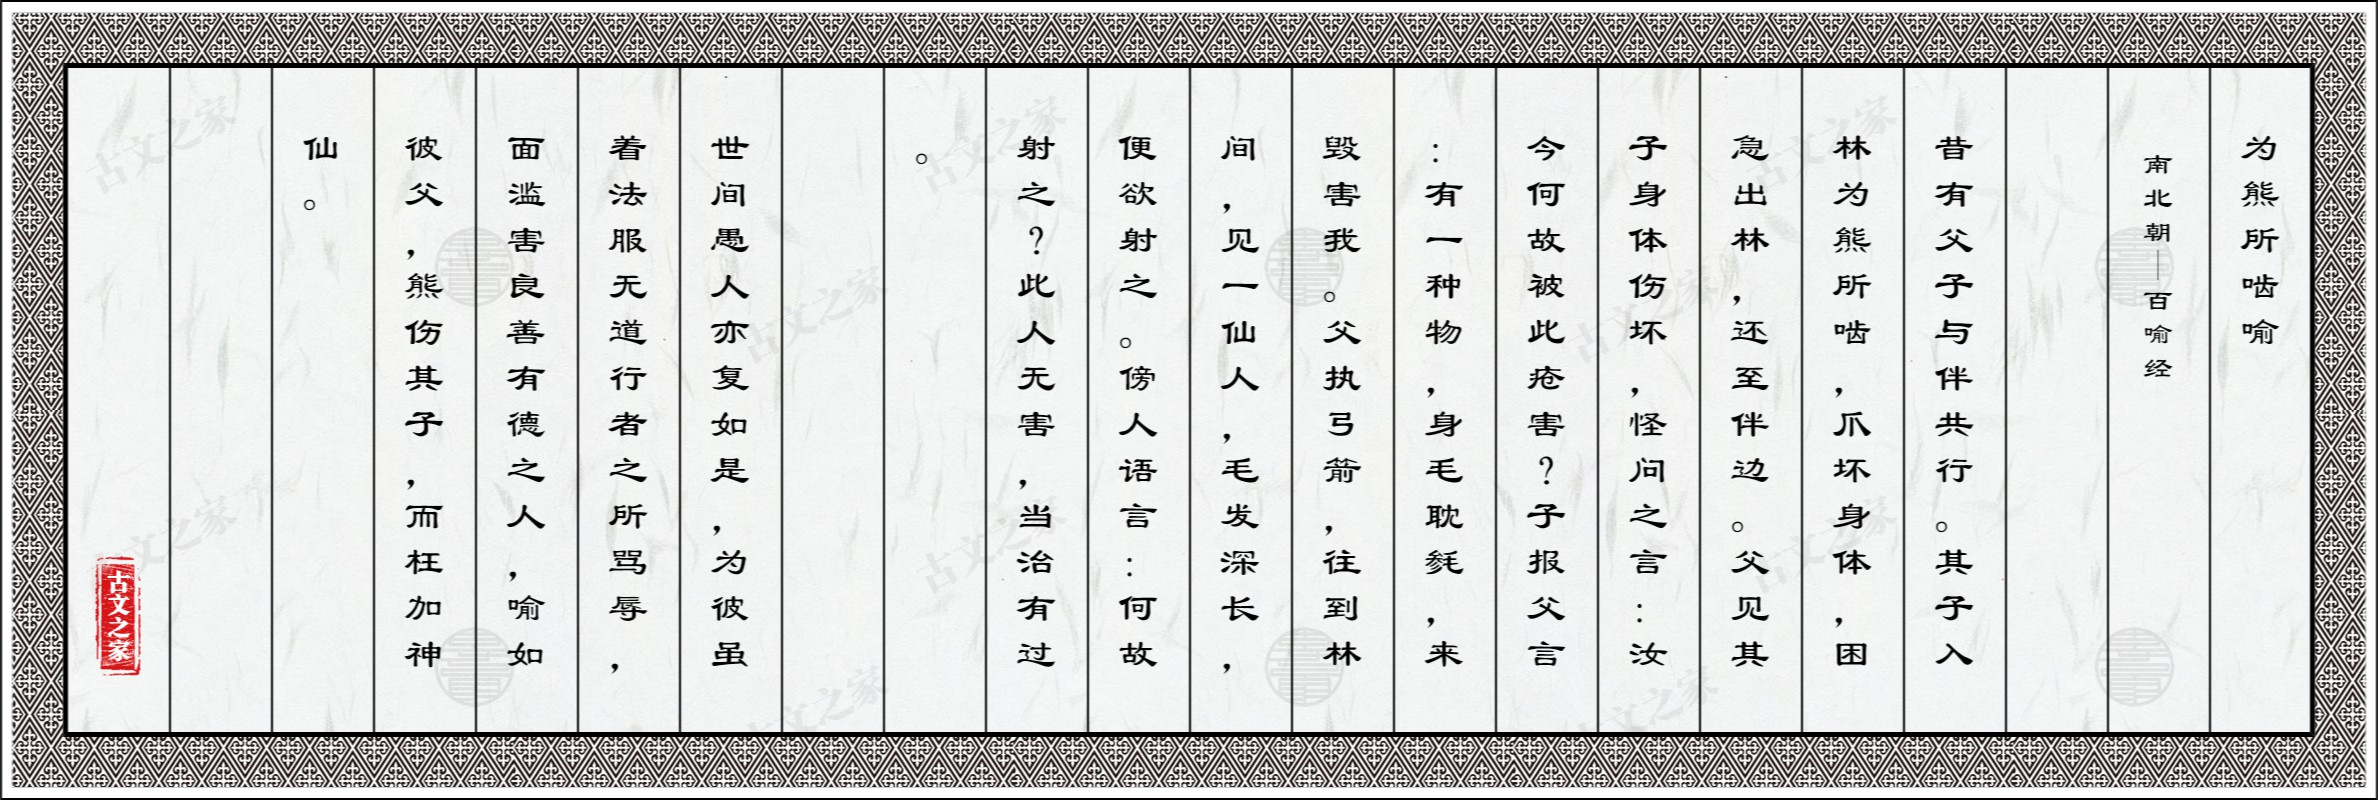 为熊所啮喻
南北朝—百喻经
昔有父子与伴共行。其子入
林为熊所啮，爪坏身体，困
急出林，还至伴边。父见其
子身体伤坏，怪问之言：汝
今何故被此疮害？子报父言
：有一种物，身毛耽毵，来
毁害我。父执弓箭，往到林
间，见一仙人，毛发深长，
便欲射之。傍人语言：何故
射之？此人无害，当治有过
。
世间愚人亦复如是，为彼虽
着法服无道行者之所骂辱，
面滥害良善有德之人，喻如
彼父，熊伤其子，而枉加神
仙。
古文之家